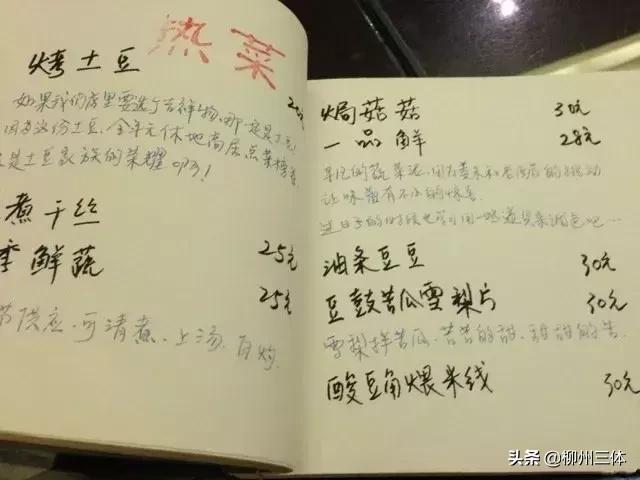 热菜
烤土豆
如果我们店里需要选个吉祥物,那一定是土豆
因为这份土豆,全年无休地高居点菜榜首
是土豆家族的荣耀
煮干丝
季鲜蔬 25元
25元
节供应,可清煮,上汤,白灼
焗菇菇 30元
一品鲜 28元
常见的蔬菜
让味蕾有不小的惊喜
过日子的时候也可以用一些道具来调色吧…
油条豆豆 30元
豆鼓苦瓜雪梨片 30元
雪梨拌苦瓜,苦苦的甜,甜甜的苦
酸豆角煨米线 30元
头条 @柳州三体